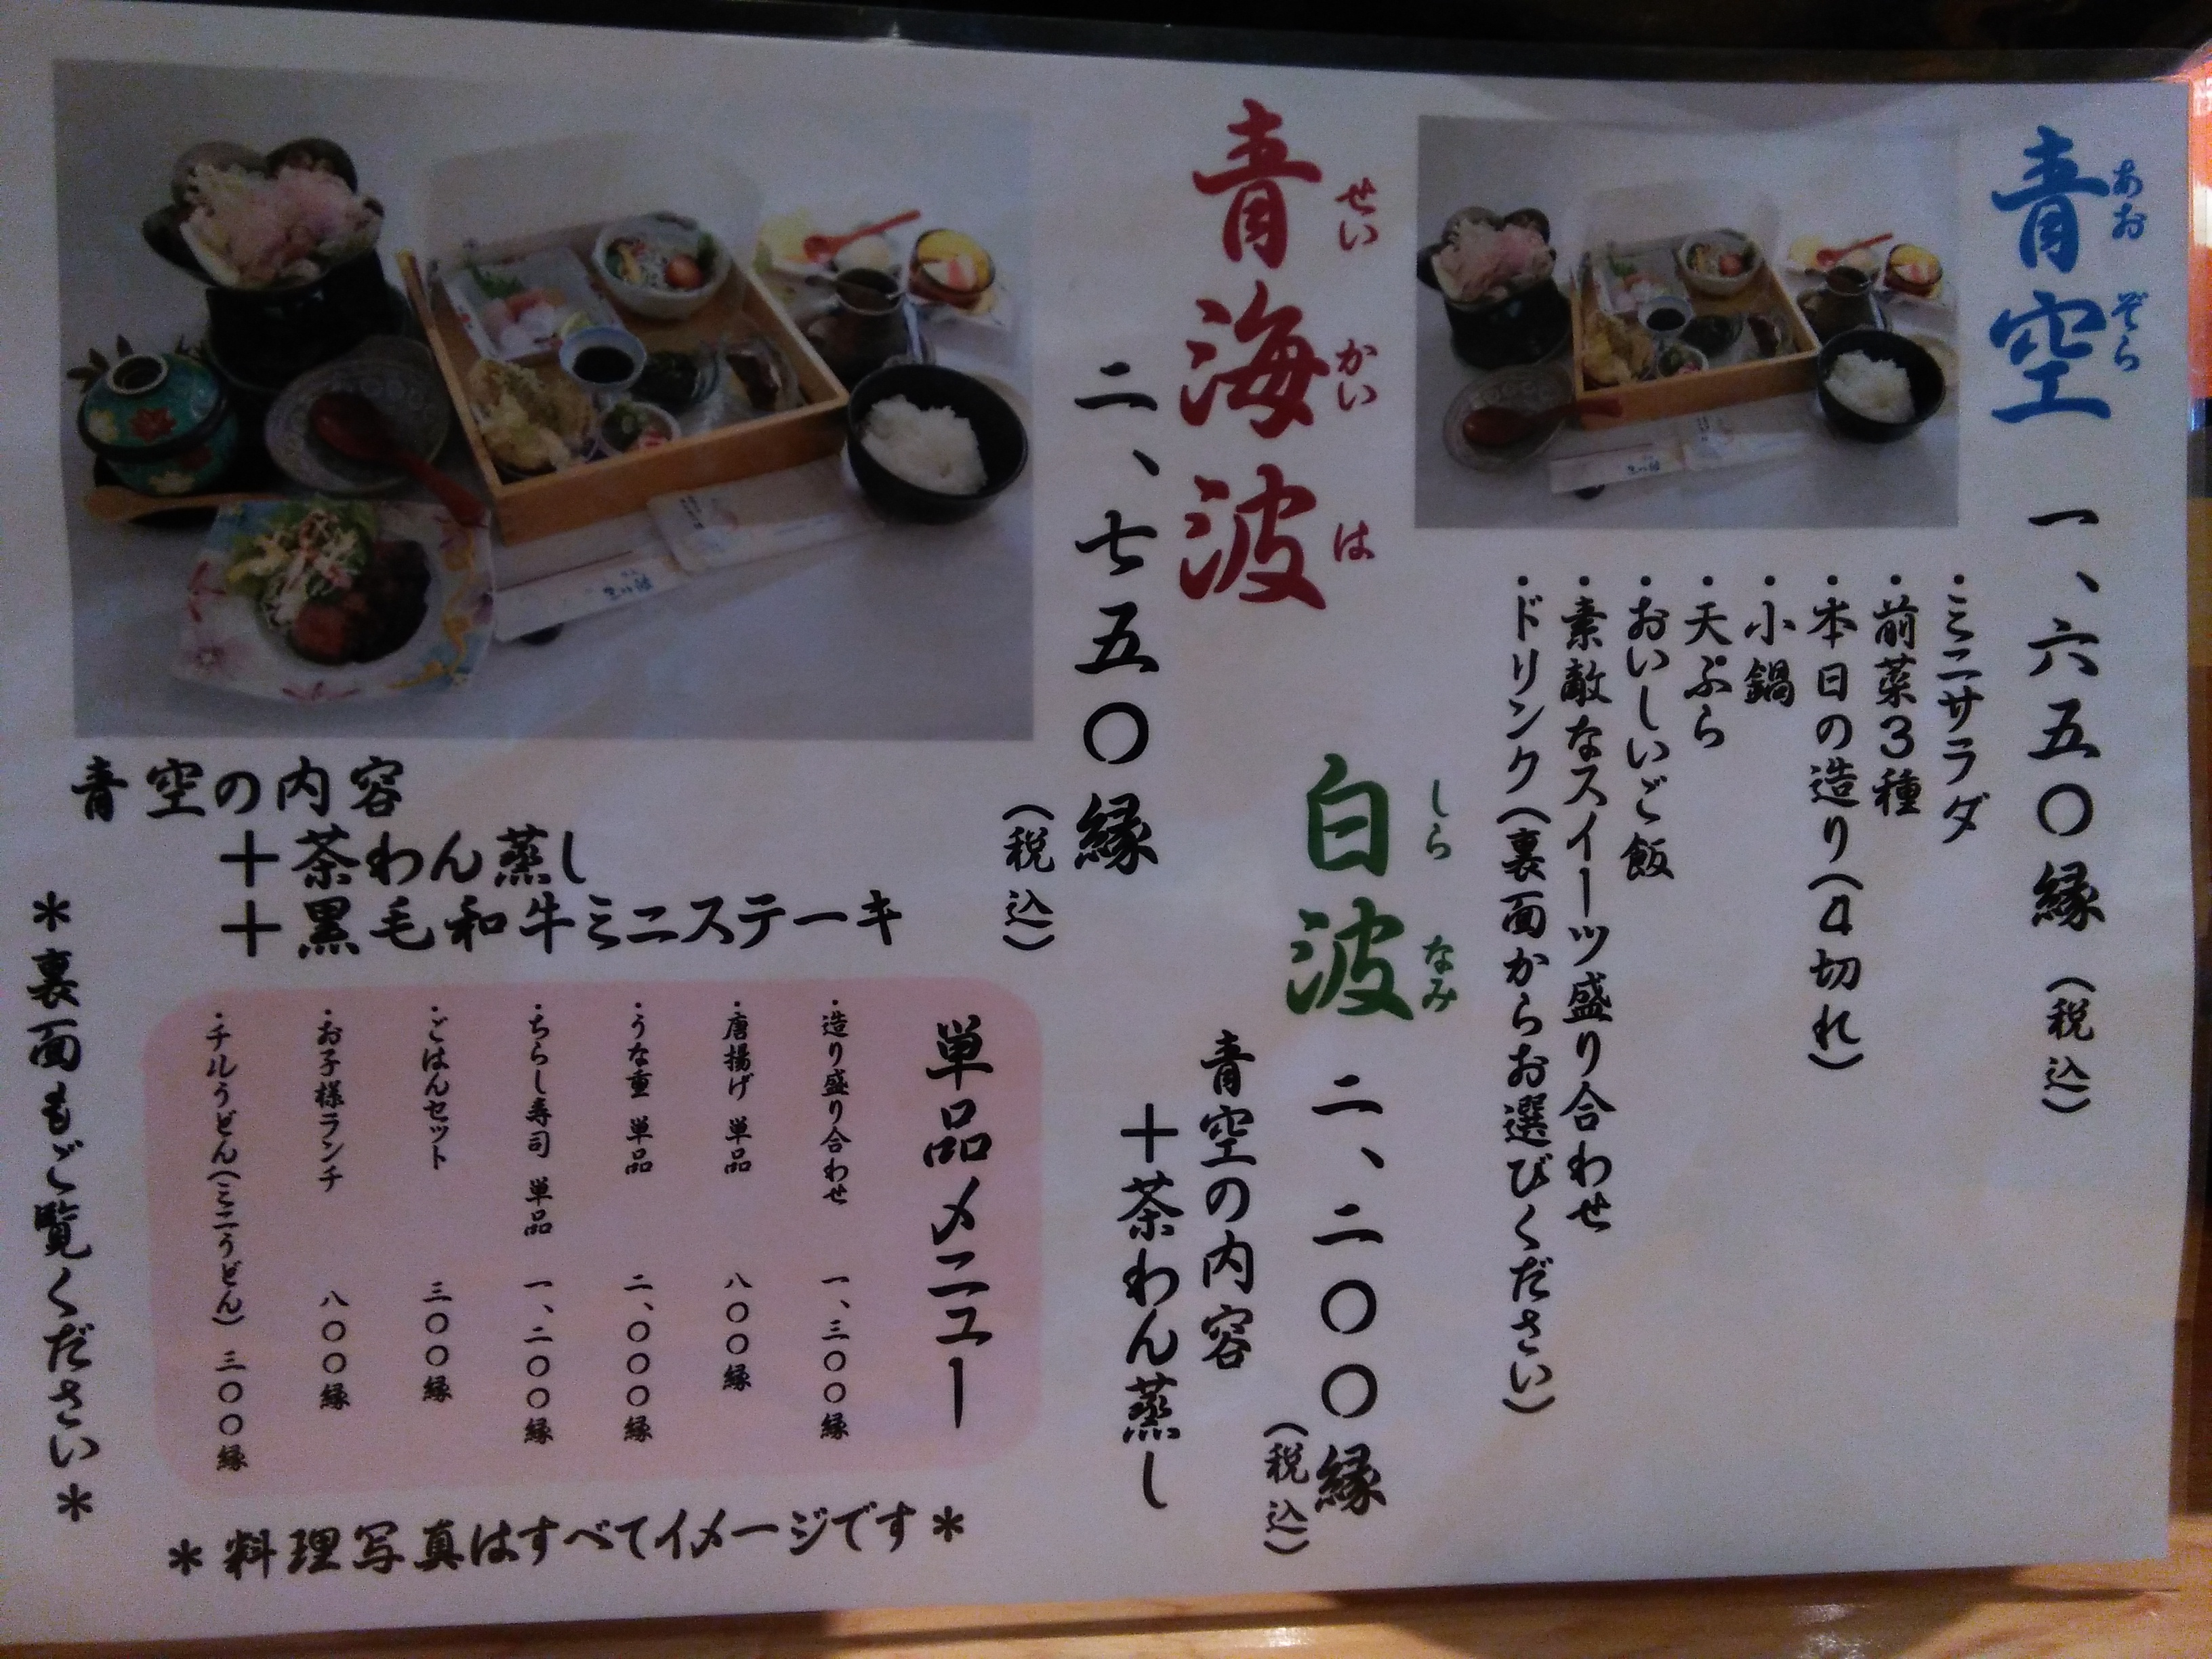 青空
あおぞら
一、六五〇縁(税込)
・ミニサラダ
・前菜3種
・本日の造り(4切れ)
・小鍋
・天ぷら
・おいしいご飯
・素敵なスイーツ盛り合わせ
・ドリンク(裏面からお選びください)
青海波
せいかいは
二、七五〇縁
(税込)
青空の内容
+茶わん蒸し
+黒毛和牛ミニステーキ
白波
しらなみ
二、二〇〇縁
(税込)
青空の内容
+茶わん蒸し
単品メニュー
・造り盛り合わせ 一、三〇〇縁
・唐揚げ 単品 八〇〇縁
・うな重 単品 二、〇〇〇縁
・ちらし寿司 単品 一、二〇〇縁
・ごはんセット 三〇〇縁
・お子様ランチ 八〇〇縁
・チルうどん(ミニうどん) 三〇〇縁
*料理写真はすべてイメージです*
*裏面もご覧ください*